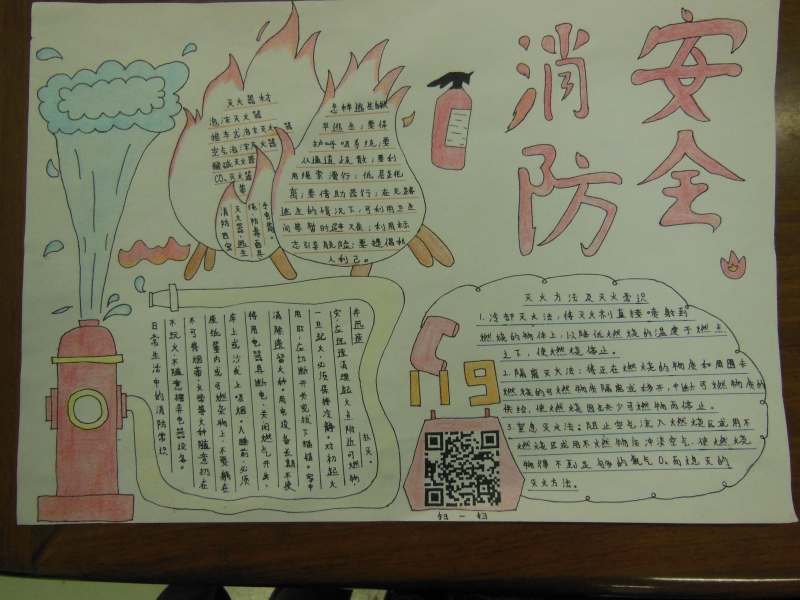 消防
安全
灭火器材
泡沫灭火器
推车式泡沫灭火器
空气泡沫灭火器
酸碱灭火器
CO₂灭火器
手电筒。
烟防毒面具
灭火器、逃生
消防四宝
怎样逃生呢
早逃生，要保
护呼吸系统；要
从通道疏散；要利
用绳索滑行；低层
离；要借助器行；在无路
逃生的情况下，可利用卫生
间等暂时避灾；利用标
志引导脱险；要提倡利
人利己。
日常生活中的消防常识
不玩火、不随意摆弄电器设备。
不可将烟蒂、火柴等火种随意扔在
废纸篓内或可燃杂物上，不要躺在
床上或沙发上吸烟。入睡前，必须
将用电器具断电，关闭燃气开关，
消除遗留火种。用电设备长期不使
用时，应切断开关或拔下插销。家中
一旦起火，必须保持冷静。对初起火
灾，应迅速清理起火点附近可燃物，
并迅速
扑灭。
灭火方法及灭火常识
1.冷却灭火法：将灭火剂直接喷射到
燃烧的物体上，以降低燃烧的温度于燃点
之下，使燃烧停止。
2.隔离灭火法：将正在燃烧的物质和周围未
燃烧的可燃物质隔离或移开，中断可燃物质的
供给，使燃烧因缺少可燃物而停止。
3.窒息灭火法：阻止空气流入燃烧区或用不
燃烧区或用不燃物质冲淡空气，使燃烧
物得不到足够的氧气O₂而熄灭的
灭火方法。
119
扫一扫